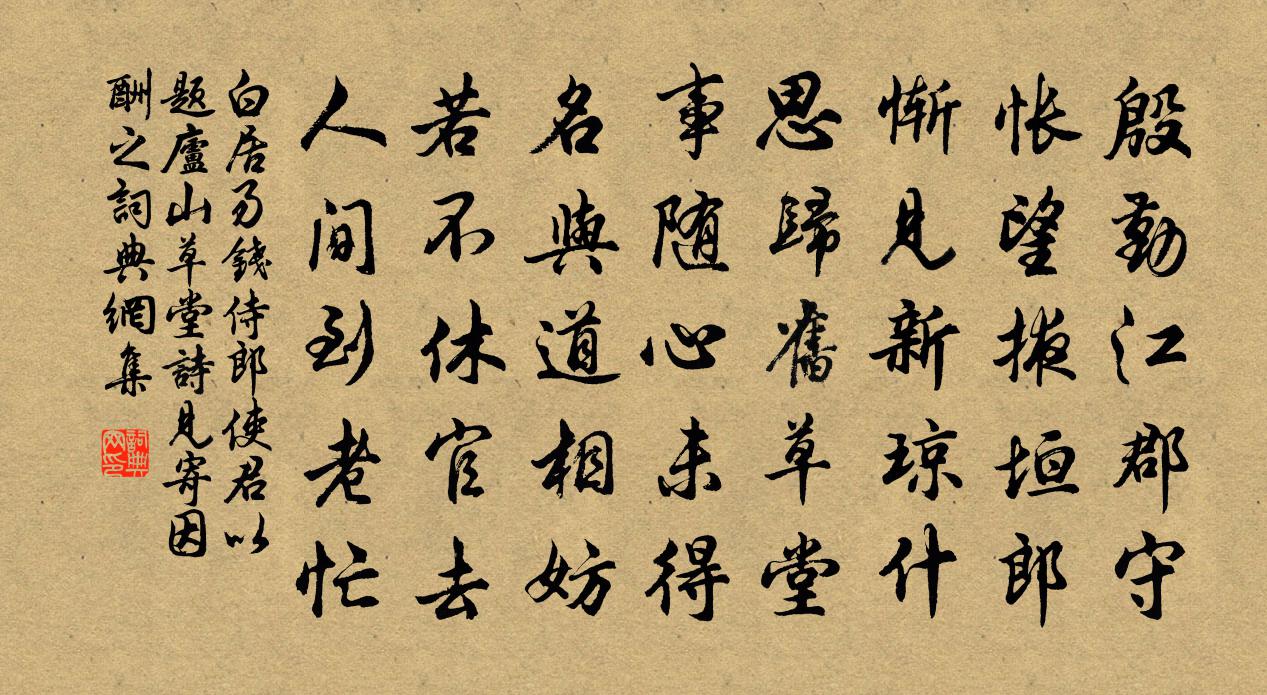 殷勤江郡守
怅望掖垣郎
惭见新琼什
思歸舊草堂
事随心未得
名與道相妨
若不休官去
人间到老忙
白居易錢侍郎使君以
题廬山草堂詩見寄因
酬之詞典網集
詞典网印